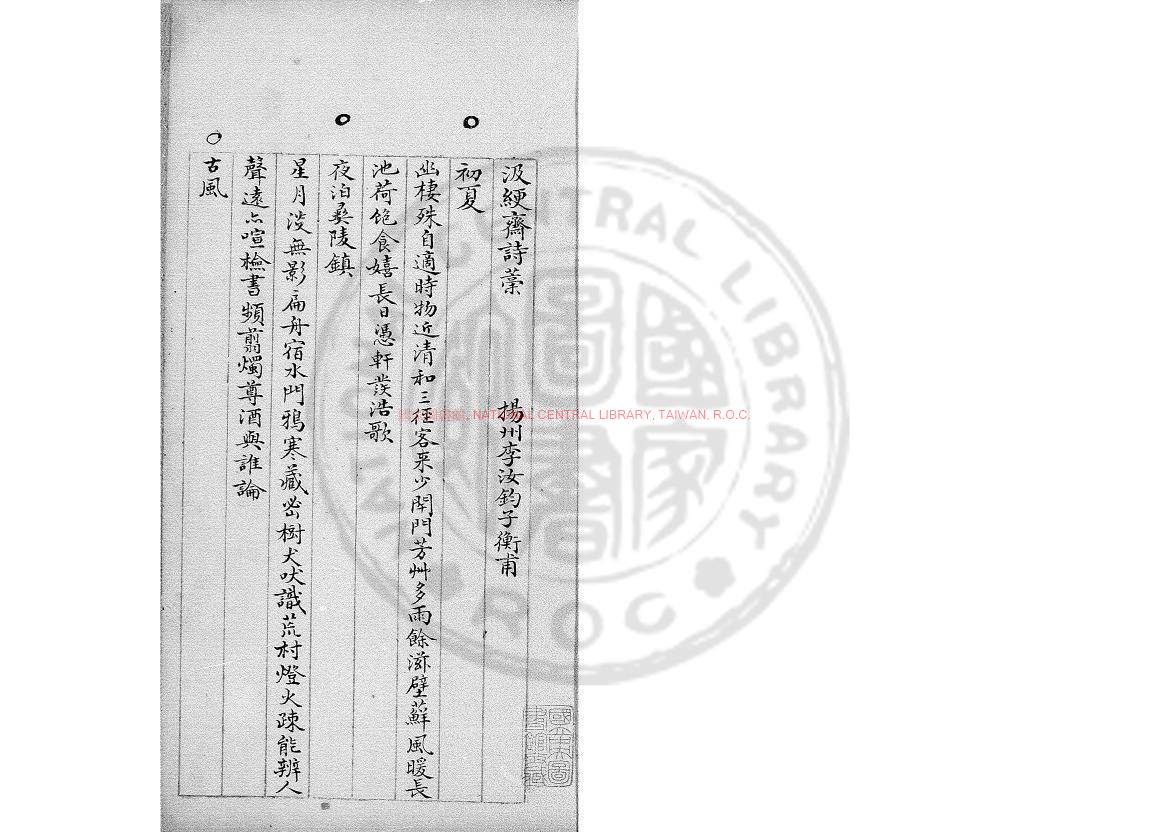 汲綆齋詩藁 揚州李汝鈞子衡甫
初夏
幽棲殊自適時物近清和三徑客來少閉門芳艸多雨餘滋壁蘚風暖長
池荷飽食嬉長日憑軒發浩歌
夜泊㬪陵鎮
星月淡無影扁舟宿水門鴉寒藏密樹犬吠識荒村燈火疎能辨人
聲遠亦喧檢書頻翦燭尊酒與誰論
古風
NATIONAL CENTRAL LIBRARY, TAIWAN, R.O.C.
CENTRAL LIBRARY
ROC
TAIWAN